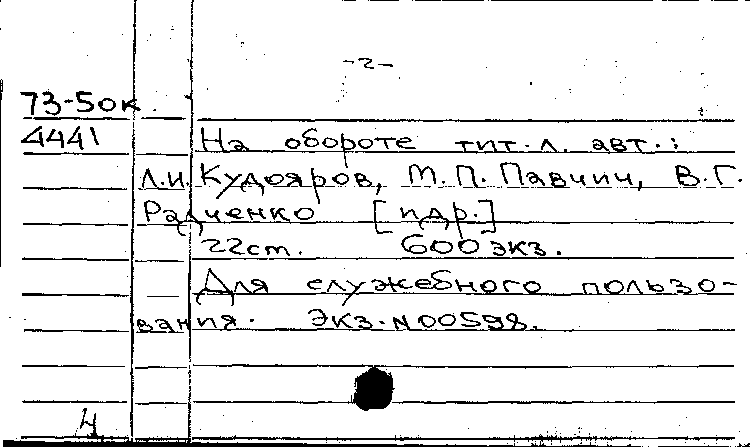 -2-
73-5ок.
4441 На обороте тит. л. авт.:
Л.И. Кудояров, М.П. Павчич, В.Г.
Радченко [и др.]
22 ст. 600 экз.
Для служебного пользо-
вания. Экз. N 00598.
4